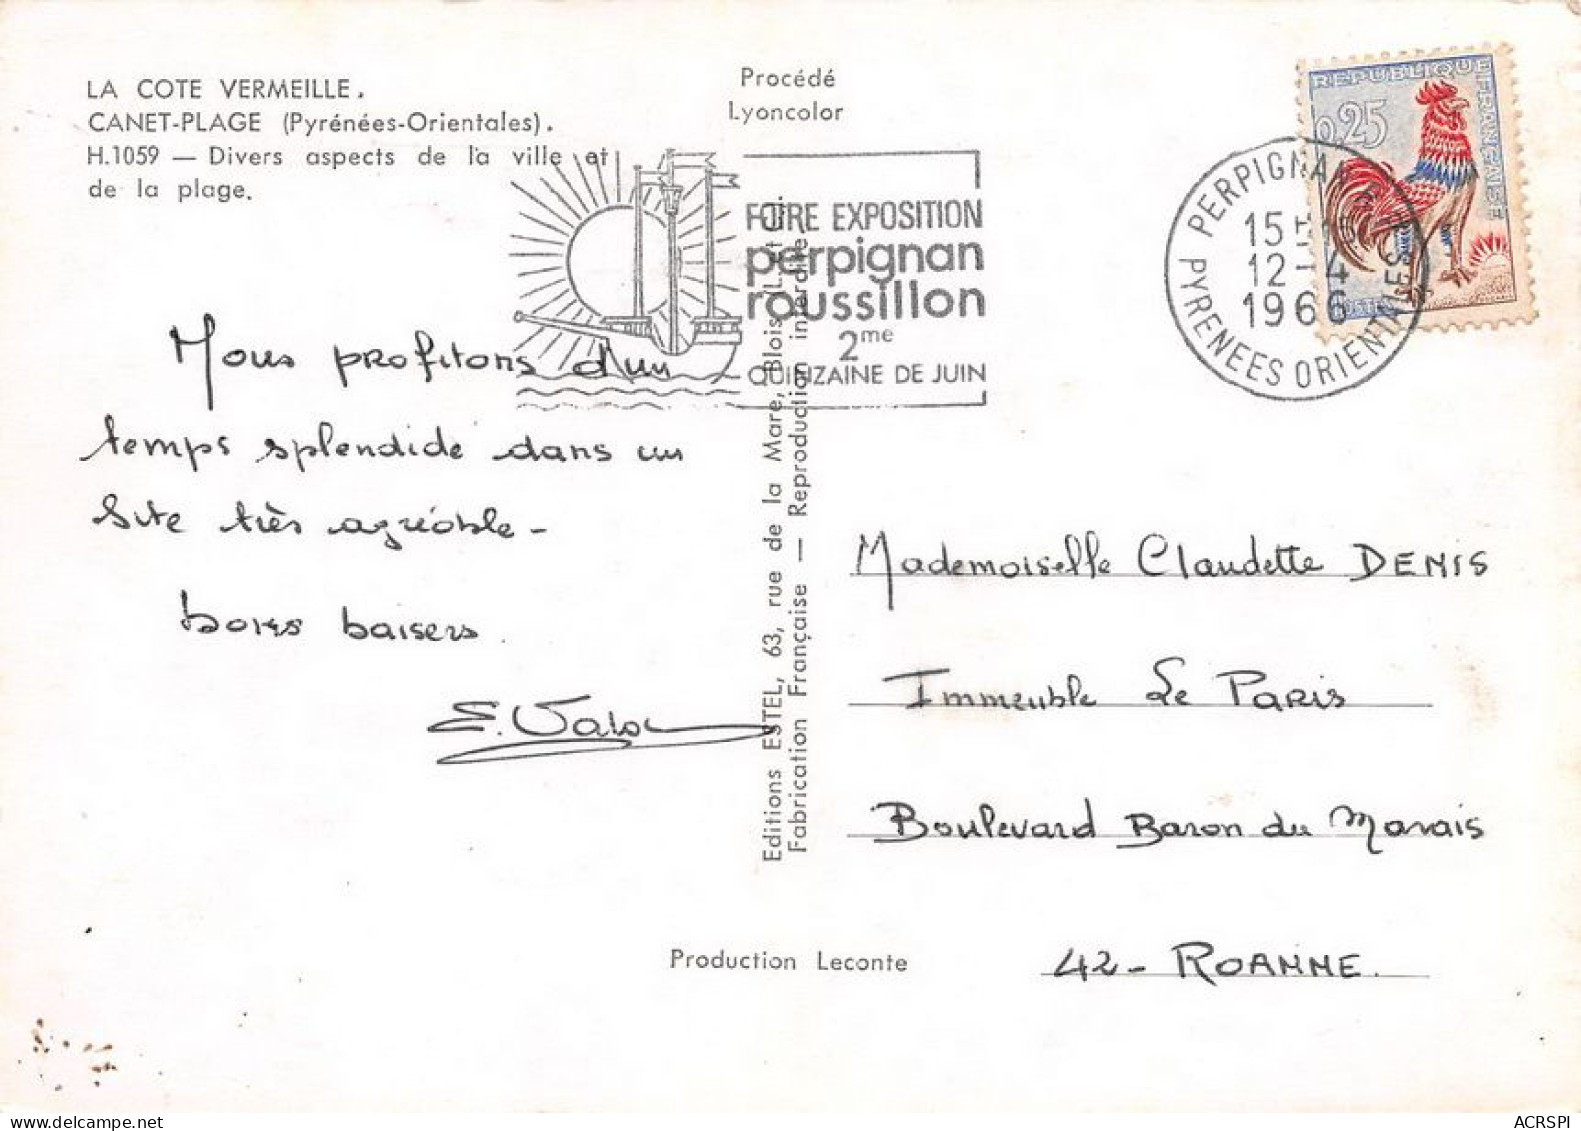 LA COTE VERMEILLE.
CANET-PLAGE (Pyrénées-Orientales).
H.1059 — Divers aspects de la ville et
de la plage.
Procédé
Lyoncolor
FOIRE EXPOSITION
perpignan
roussillon
2me
QUINZAINE DE JUIN
PERPIGNAN
15 H
12-4
1966
PYRENEES ORIENTALES
REPUBLIQUE FRANÇAISE
0,25
POSTES
Nous profitons d'un
temps splendide dans un
site très agréable -
bons baisers.
Editions ESTEL, 63, rue de la Mare, Blois (L.-et-C.).
Fabrication Française — Reproduction interdite.
Mademoiselle Claudette DENIS
Immeuble Le PARIS
Boulevard Baron du Marais
42 - ROANNE.
Production Leconte
ACRSPI